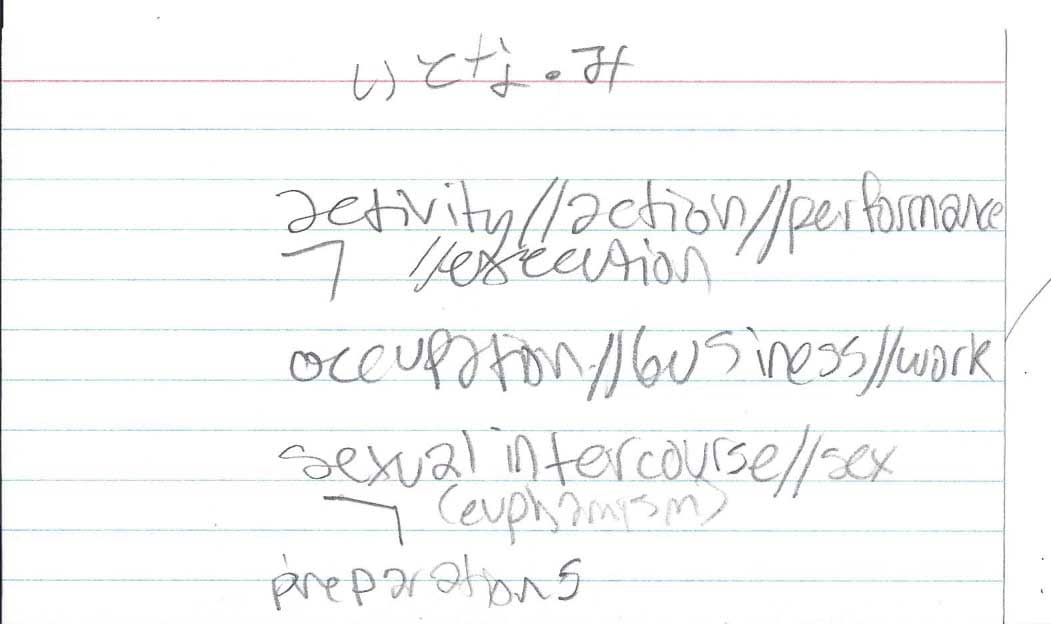 いとな・み
activity//action//performance
//execution
occupation//business//work
sexual intercourse//sex
(euphamism)
preparations